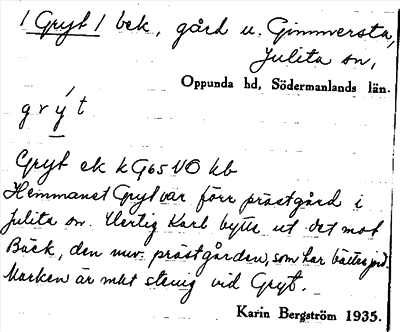 / Gryt / bek, gård u. Gimmersta,
Julita sn,
Oppunda hd, Södermanlands län.
g r ý t
Gryt ek KG65 VO kb
Hemmanet Gryt var förr prästgård i
Julita sn. Hertig Karl bytte ut det mot
Bäck, den nuv. prästgården, som har bättre jord.
Marken är mkt stenig vid Gryt.
Karin Bergström 1935.